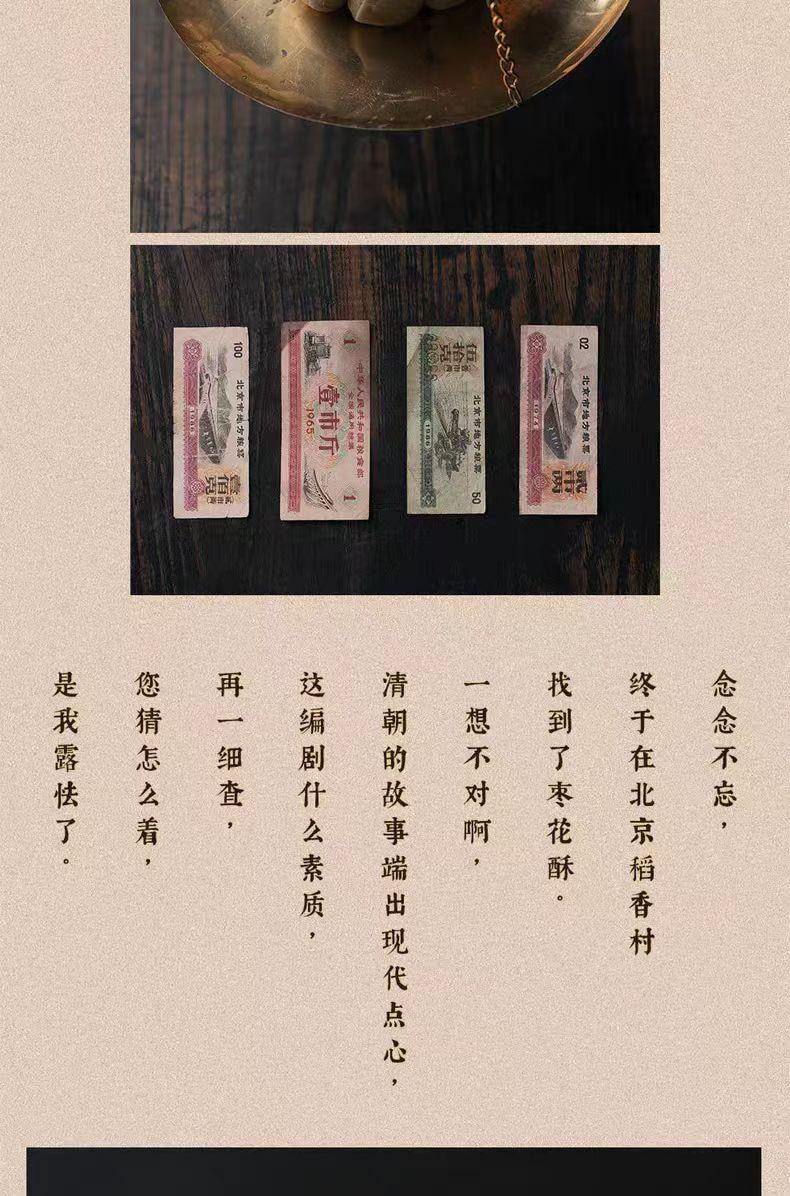 100
北京市地方粮票
1986
壹佰克
贰市两
1
中华人民共和国粮食部
全国通用粮票
壹市斤
1965
1
伍拾克
壹市两
北京市地方粮票
1986
50
02
北京市地方粮票
1974
贰市两
念念不忘，
终于在北京稻香村
找到了枣花酥。
一想不对啊，
清朝的故事端出现代点心，
这编剧什么素质，
再一细查，
您猜怎么着，
是我露怯了。